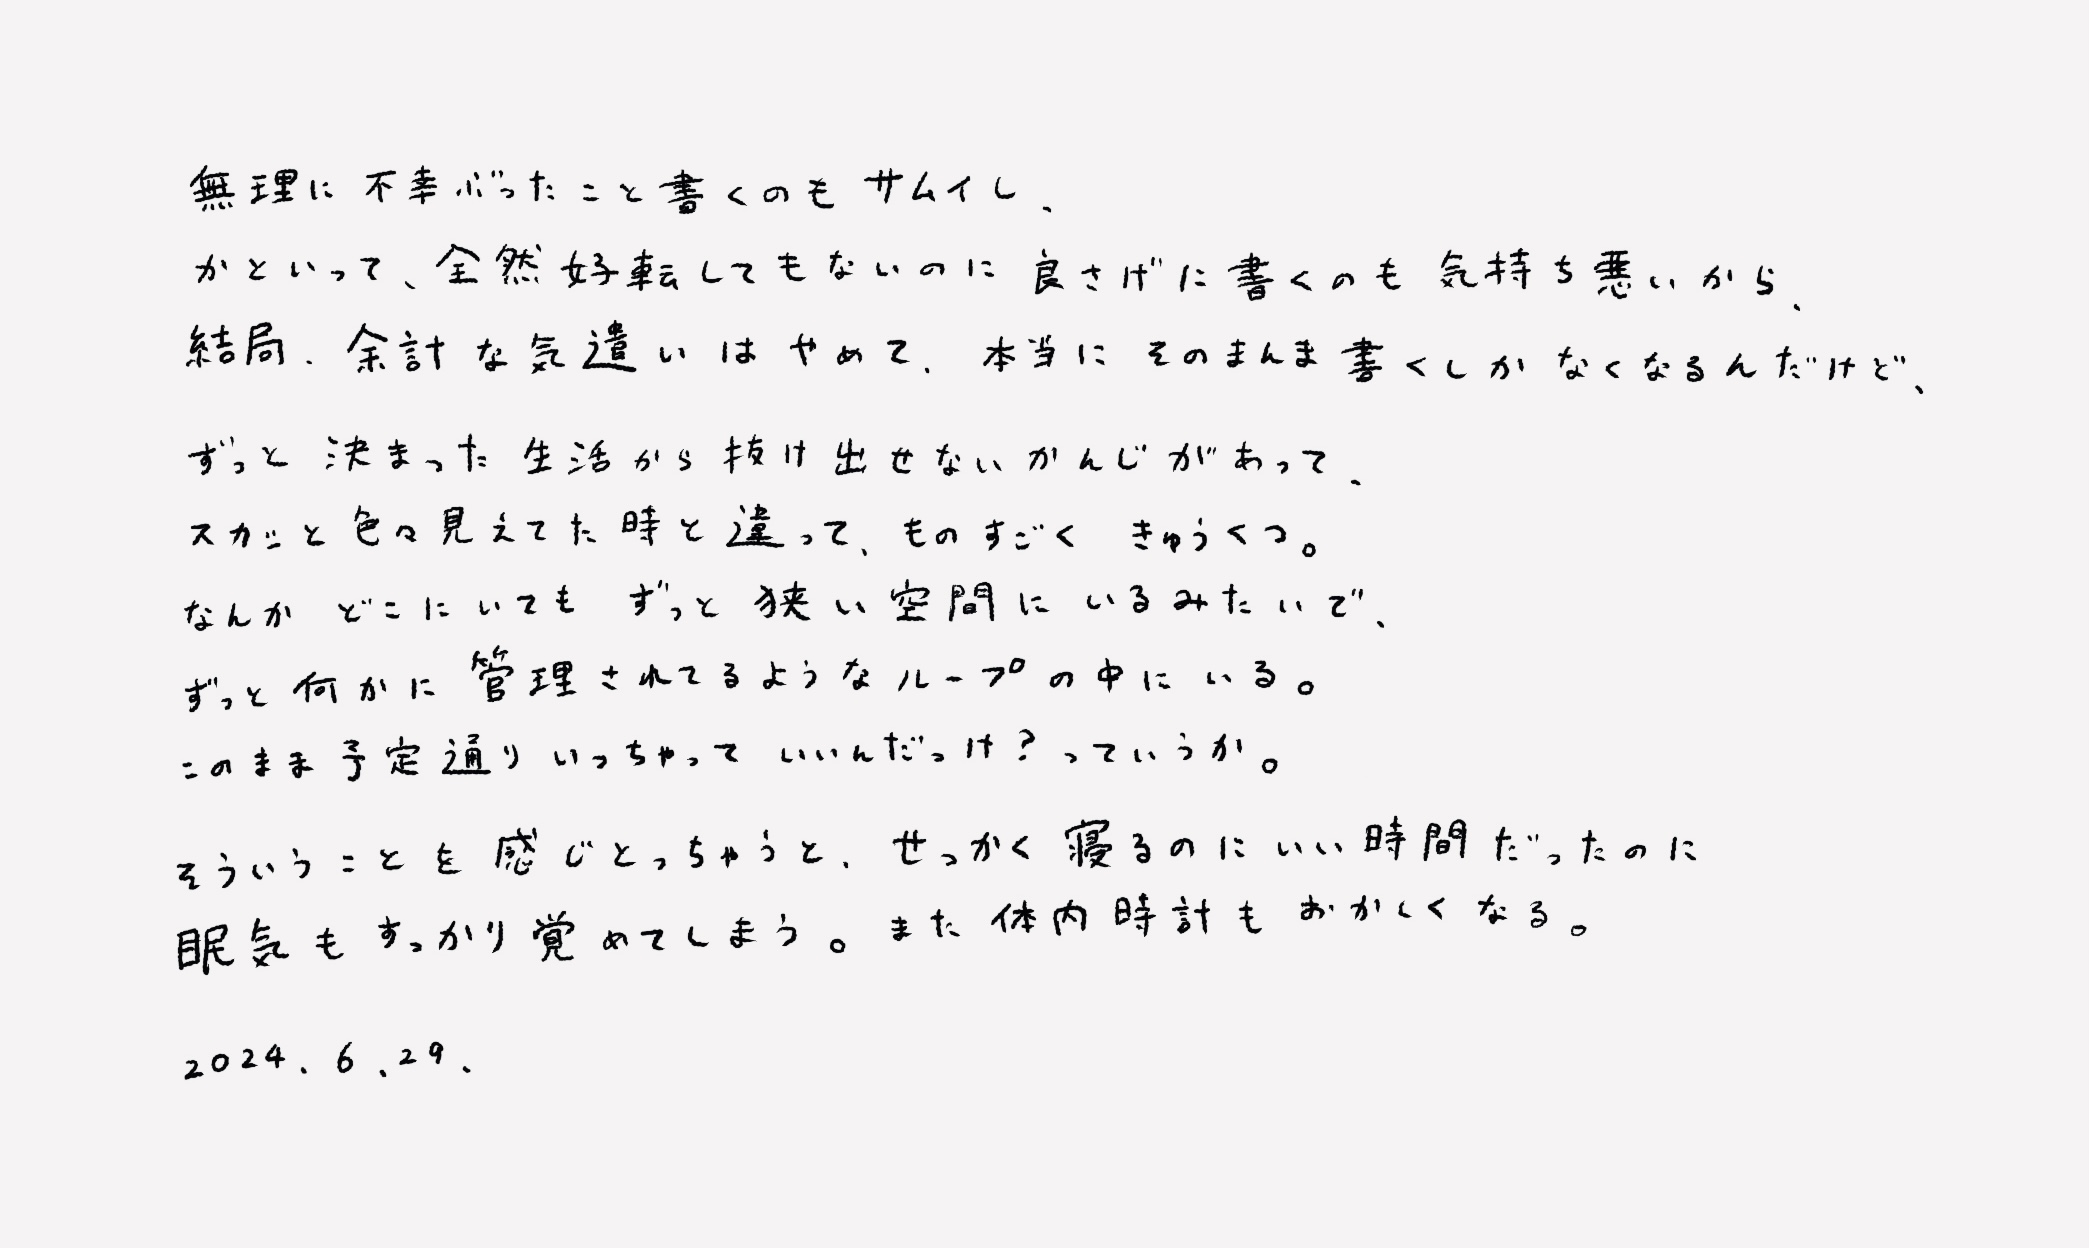 無理に不幸ぶったこと書くのもサムイし、
かといって、全然好転してもないのに良さげに書くのも気持ち悪いから、
結局、余計な気遣いはやめて、本当にそのまんま書くしかなくなるんだけど、
ずっと決まった生活から抜け出せないかんじがあって、
スカッと色々見えてた時と違って、ものすごくきゅうくつ。
なんかどこにいてもずっと狭い空間にいるみたいで、
ずっと何かに管理されてるようなループの中にいる。
このまま予定通りいっちゃっていいんだっけ?っていうか。
そういうことを感じとっちゃうと、せっかく寝るのにいい時間だったのに
眠気もすっかり覚めてしまう。また体内時計もおかしくなる。
2024.6.29.